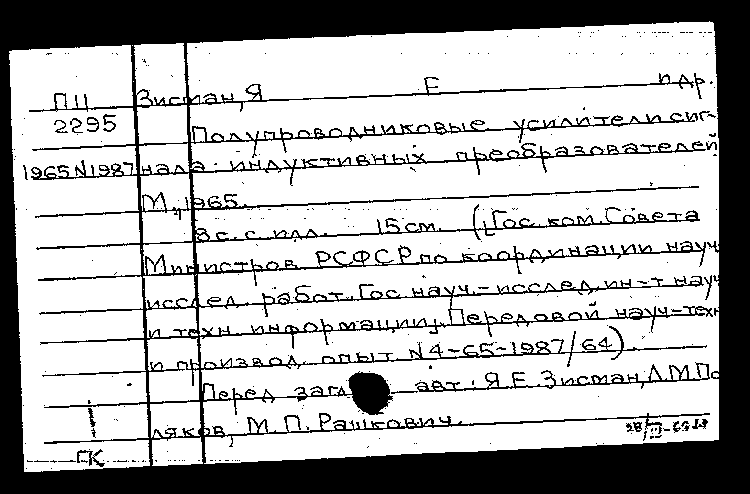 ПЦ Зисман, Я Е и др.
2295 Полупроводниковые усилители сиг-
1965 N1987 нала индуктивных преобразователей
М., 1965.
8 с. с илл. 15 см. ([Гос. ком. Совета
Министров РСФСР по координации науч
исслед. работ. Гос науч.-исслед. ин-т науч
и техн. информации]. Передовой науч-техн
и производ. опыт N 4-65-1987/64).
Перед загл авт.: Я.Е. Зисман, Л.М. По
ляков, М.П. Рашкович.
ГК